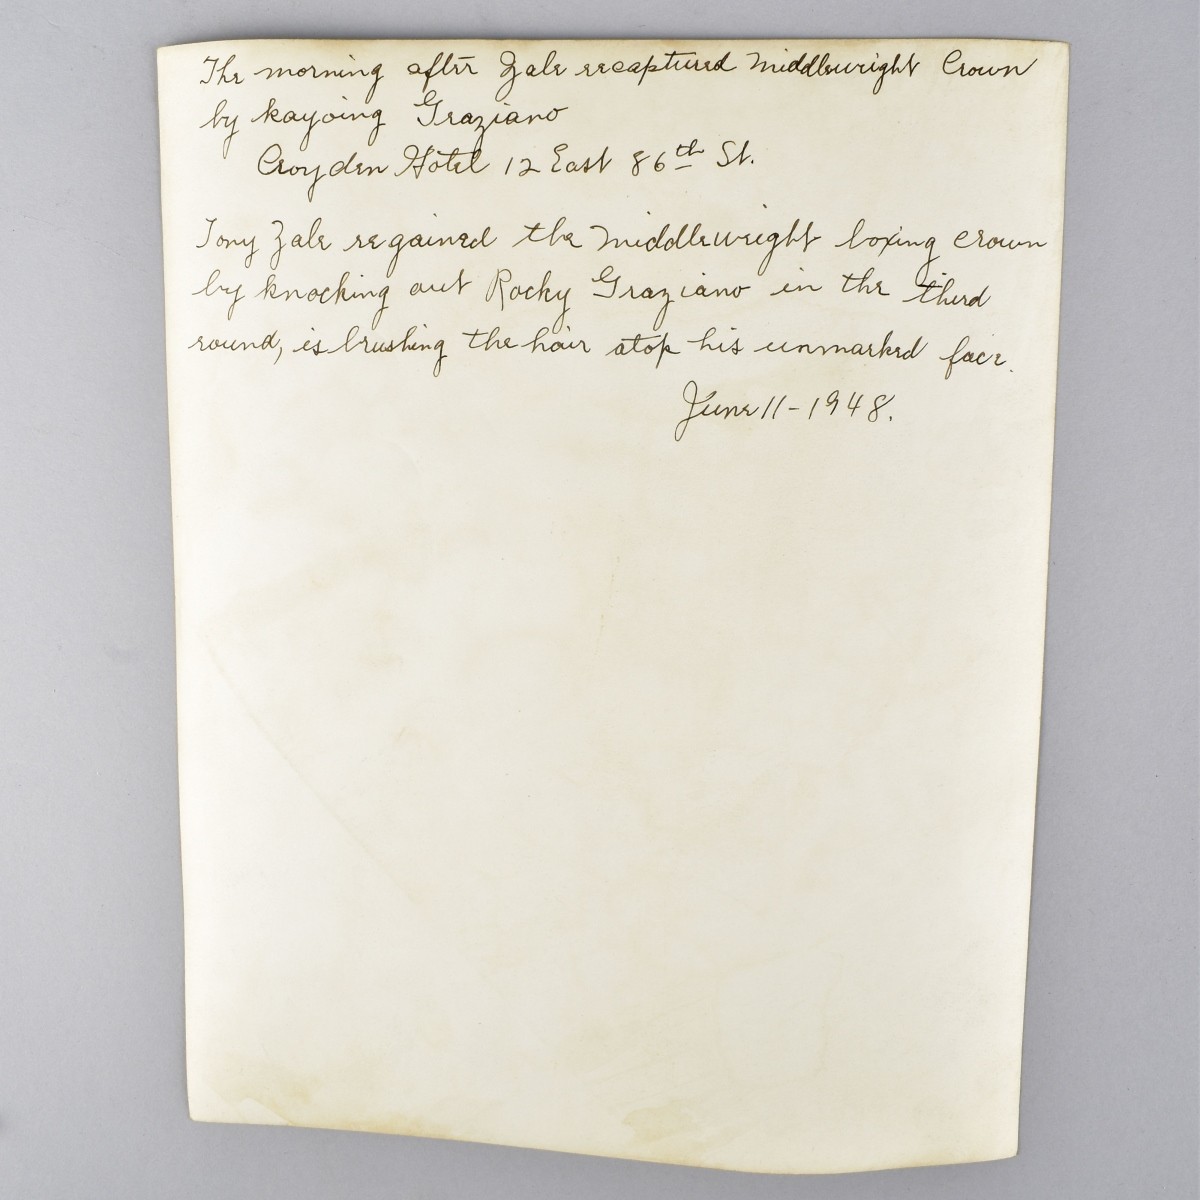 The morning after Zale recaptured Middleweight Crown
by kayoing Graziano
Croyden Hotel 12 East 86th St.
Tony Zale regained the middleweight boxing crown
by knocking out Rocky Graziano in the third
round, is brushing the hair atop his unmarked face.
June 11-1948.